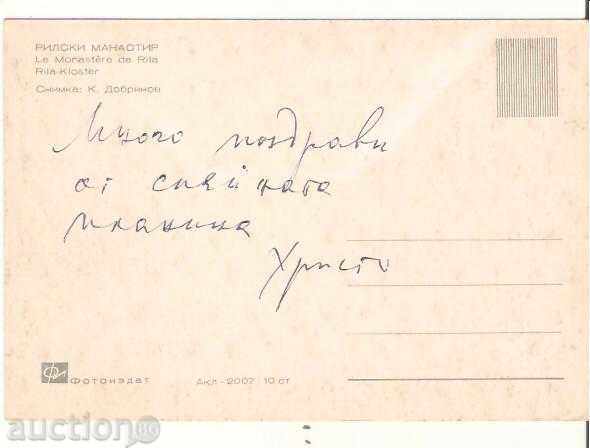 РИЛСКИ МАНАСТИР
Le Monastère de Rila
Rila-Kloster
Снимка: К. Добринов
Много поздрави
от
планина
Христо
Фотоиздат
Акл-2007 10 ст
auction.bg